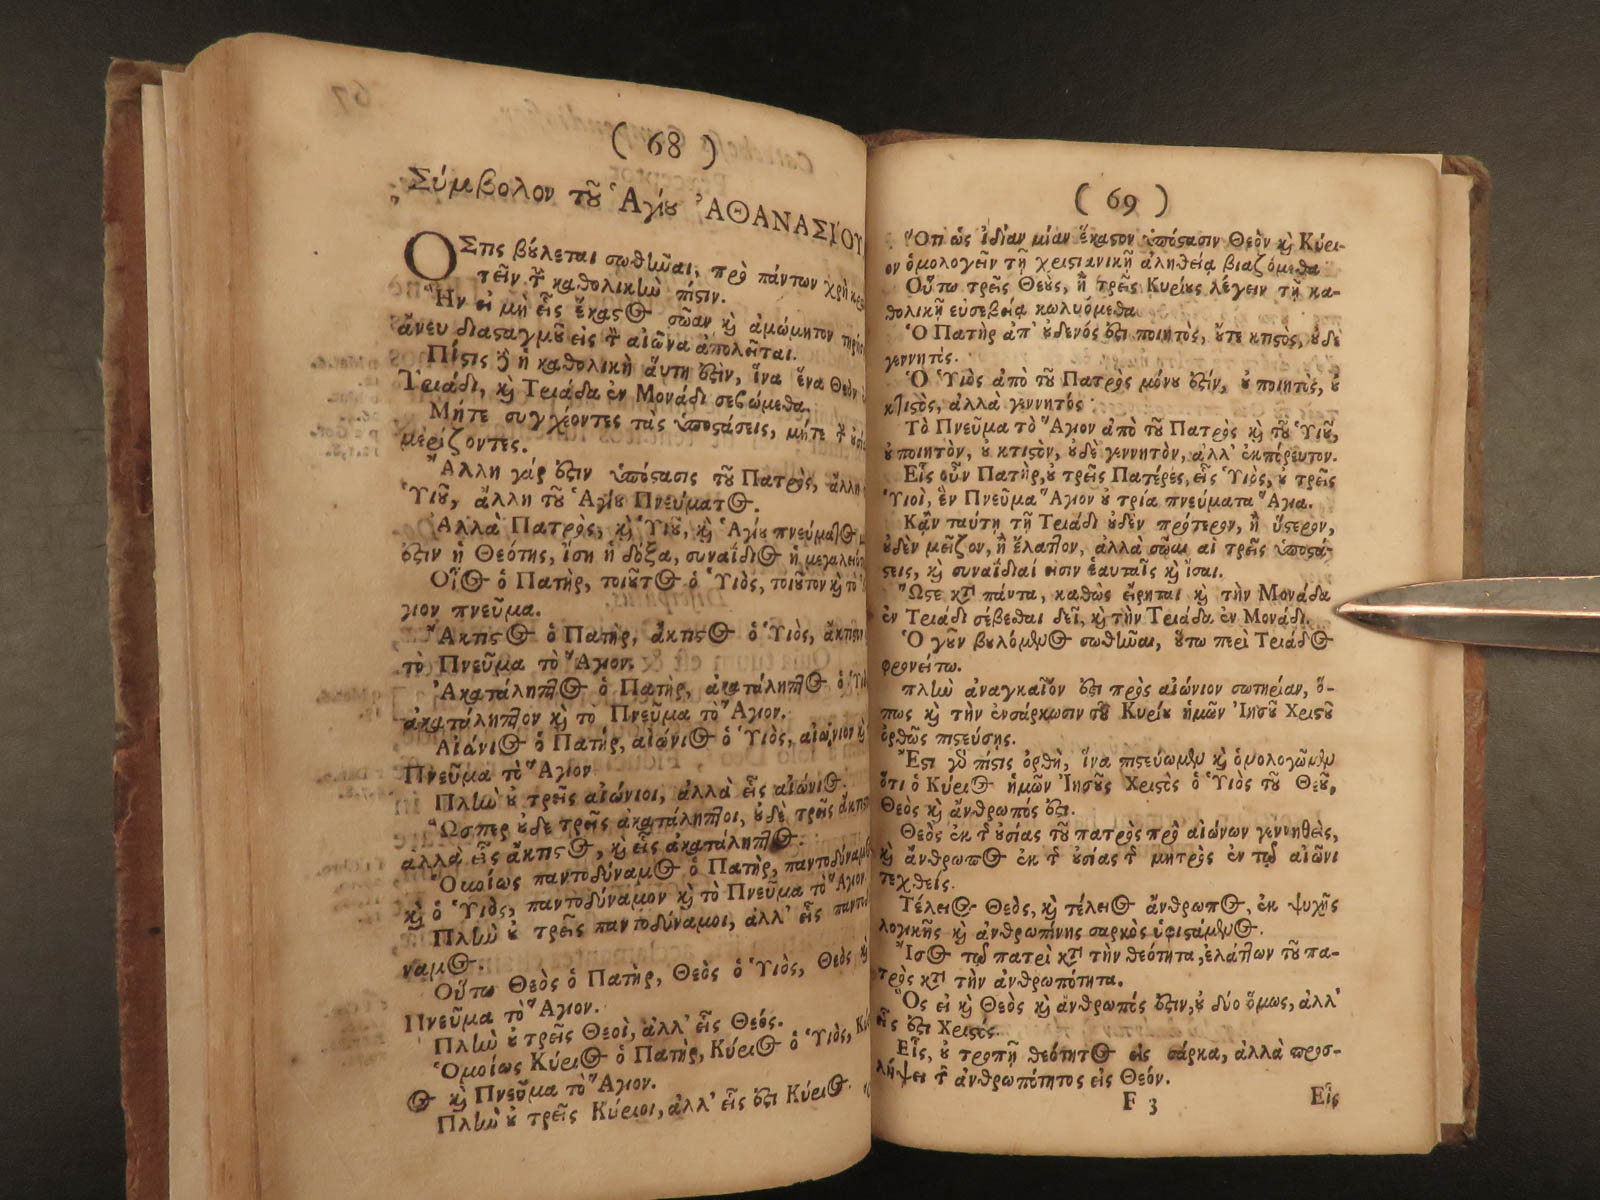 ( 68 )
Σύμβολον τȣ͂ Ἁγίȣ ἈΘΑΝΑΣΙΌΥ
ΟΣτις βȣ́λεται σωθῆναι, πρὸ πάντων χρὴ
τεῖν τ̀ καθολικὴν πίϛιν.
Ἣν εἰ μὴ εἷς ἕκαϛος σῶαν κ̀ ἀμώμητον
ἄνευ διϛαγμȣ͂ εἰς τ̀ αἰῶνα ἀπολεῖται.
Πίϛις ἡ καθολικὴ ἅυτη ὄϛὶν, ἵνα ἕνα Θεὸν
Τριάδι, κ̀ Τριάδα ἐν Μονάδι σεβώμεθα.
Μήτε συγχέοντες τὰς ὑποϛάσεις, μήτε τ̀
μερίζοντες.
Ἄλλη γάρ ὄϛιν ὑπόϛασις τȣ͂ Πατρὸς, ἄλλη
Ὑιȣ͂, ἄλλη τȣ͂ Ἁγίȣ Πνεύματος.
Ἀλλὰ Πατρὸς, κ̀ Ὑιȣ͂, κ̀ Ἁγίȣ πνεύματος
ὄϛιν ἡ Θεότης, ἴση ἡ δόξα, συναΐδιος ἡ
Οἷος ὁ Πατὴρ, τοιȣ͂τος ὁ Ὑιὸς, τοιȣ͂τον κ̀ τὸ
γιον πνεῦμα.
Ἄκτιϛος ὁ Πατὴρ, ἄκτιϛος ὁ Ὑιὸς,
τὸ Πνεῦμα τὸ Ἅγιον.
Ἀκατάληπτος ὁ Πατὴρ, ἀκατάληπτος ὁ
ἀκατάληπτον κ̀ το Πνεῦμα τὸ Ἅγιον.
Αἰώνιος ὁ Πατὴρ, αἰώνιος ὁ Ὑιὸς, αἰώνιον κ̀
Πνεῦμα τὸ Ἅγιον
Πλὴν ȣ̓ τρεῖς αἰώνιοι, ἀλλὰ εἷς αἰώνιος.
Ὥσπερ ȣ̓δὲ τρεῖς ἀκατάληπτοι, ȣ̓δὲ τρεῖς
ἀλλὰ εἷς ἄκτιϛος, κ̀ εἷς ἀκατάληπτος.
Ὁμοίως παντοδύναμος ὁ Πατὴρ,
κ̀ ὁ Ὑιὸς, παντοδύναμον κ̀ τὸ Πνεῦμα τὸ Ἅγιον
Πλὴν ȣ̓ τρεῖς παντοδύναμοι, ἀλλ' εἷς
ναμος.
Οὕτω Θεὸς ὁ Πατὴρ, Θεὸς ὁ Ὑιὸς, Θεὸς κ̀
Πνεῦμα τὸ Ἅγιον.
Πλὴν ȣ̓ τρεῖς Θεοὶ, ἀλλ' εἷς Θεός.
Ὁμοίως Κύριος ὁ Πατὴρ, Κύριος ὁ Ὑιὸς,
ος κ̀ Πνεῦμα τὸ Ἅγιον.
Πλὴν ȣ̓ τρεῖς Κύριοι, ἀλλ' εἷς ὄϛι Κύριος.
( 69 )
Ὅτι ὡς ἰδίαν μίαν ἕκαϛον ὑπόϛασιν Θεὸν κ̀ Κύρι-
ον ὁμολογεῖν τῇ χριϛιανικῇ ἀληθείᾳ βιαζόμεθα
Οὕτω τρεῖς Θεȣ̀ς, ἢ τρεῖς Κυρίȣς λέγειν τῇ κα-
θολικῇ εὐσεβείᾳ κωλυόμεθα
Ὁ Πατὴρ ἀπ' ȣ̓δενός ὄϛι ποιητὸς, ȣ̓́τε κτιϛὸς, ȣ̓δὲ
γεννητός.
Ὁ Ὑιὸς ἀπὸ τȣ͂ Πατρὸς μόνȣ ὄϛίν, ȣ̓ ποιητὸς, ȣ̓
κτιϛὸς, ἀλλὰ γεννητός
Τὸ Πνεῦμα τὸ Ἅγιον ἀπὸ τȣ͂ Πατρὸς κ̀ τȣ͂ Ὑιȣ͂,
ȣ̓ ποιητὸν, ȣ̓ κτιϛὸν, ȣ̓δὲ γεννητὸν, ἀλλ' ἐκπόρευτον.
Εἷς οὖν Πατὴρ, ȣ̓ τρεῖς Πατέρες, εἷς Ὑιὸς, ȣ̓ τρεῖς
Ὑιοὶ, ἓν Πνεῦμα Ἅγιον ȣ̓ τρία πνεύματα Ἅγια.
Κἂν ταύτῃ τῇ Τριάδι ȣ̓δὲν πρότερον, ἢ ὕϛερον,
ȣ̓δὲν μεῖζον, ἢ ἔλαττον, ἀλλὰ σῶαι αἱ τρεῖς ὑποϛά-
ϛεις, κ̀ συναΐδιαί εἰσιν ἑαυταῖς κ̀ ἴσαι.
Ὥϛε κτ̀ πάντα, καθὼς εἴρηται κ̀ τὴν Μονάδα
ἐν Τριάδι σέβεσθαι δεῖ, κ̀ τὴν Τριάδα ἐν Μονάδι.
Ὁ γȣ͂ν βȣλόμενος σωθῆναι, ȣ̔́τω περὶ Τριάδος
φρονείτω.
πλὴν ἀναγκαῖον ὄϛι πρὸς αἰώνιον σωτηρίαν, ὅ-
πως κ̀ τὴν ἐνσάρκωσιν τȣ͂ Κυρίȣ ἡμῶν Ἰησȣ͂ Χριϛȣ͂
ὀρθῶς πιϛεύσῃς.
Ἔϛι γδ̀ πίϛις ὀρθὴ, ἵνα πιϛεύωμεν κ̀ ὁμολογῶμεν
ὅτι ὁ Κύριος ἡμῶν Ἰησȣ͂ς Χριϛὸς ὁ Ὑιὸς τȣ͂ Θεȣ͂,
Θεὸς κ̀ ἄνθρωπός ὄϛι.
Θεὸς ἐκ τ̂ ȣ̓σίας τȣ͂ πατρὸς πρὸ αἰώνων γεννηθεὶς,
κ̀ ἄνθρωπος ἐκ τ̂ ȣ̓σίας τ̂ μητρὸς ἐν τῷ αἰῶνι
τεχθείς.
Τέλειος Θεὸς, κ̀ τέλειος ἄνθρωπος, ἐκ ψυχῆς
λογικῆς κ̀ ἀνθρωπίνης σαρκὸς ὑφιϛάμενος.
Ἴσος τῷ πατρὶ κτ̀ τὴν θεότητα, ἐλάττων τȣ͂ πα-
τρὸς κτ̀ τὴν ἀνθρωπότητα.
Ὃς εἰ κ̀ Θεὸς κ̀ ἄνθρωπός ὄϛιν, ȣ̓ δύο ὅμως, ἀλλ'
εἷς ὄϛι Χριϛός.
Εἷς, ȣ̓ τροπῇ θεότητος εἰς σάρκα, ἀλλὰ προσ-
λήψει τ̂ ἀνθρωπότητος εἰς Θεόν.
F 3 Εἷς